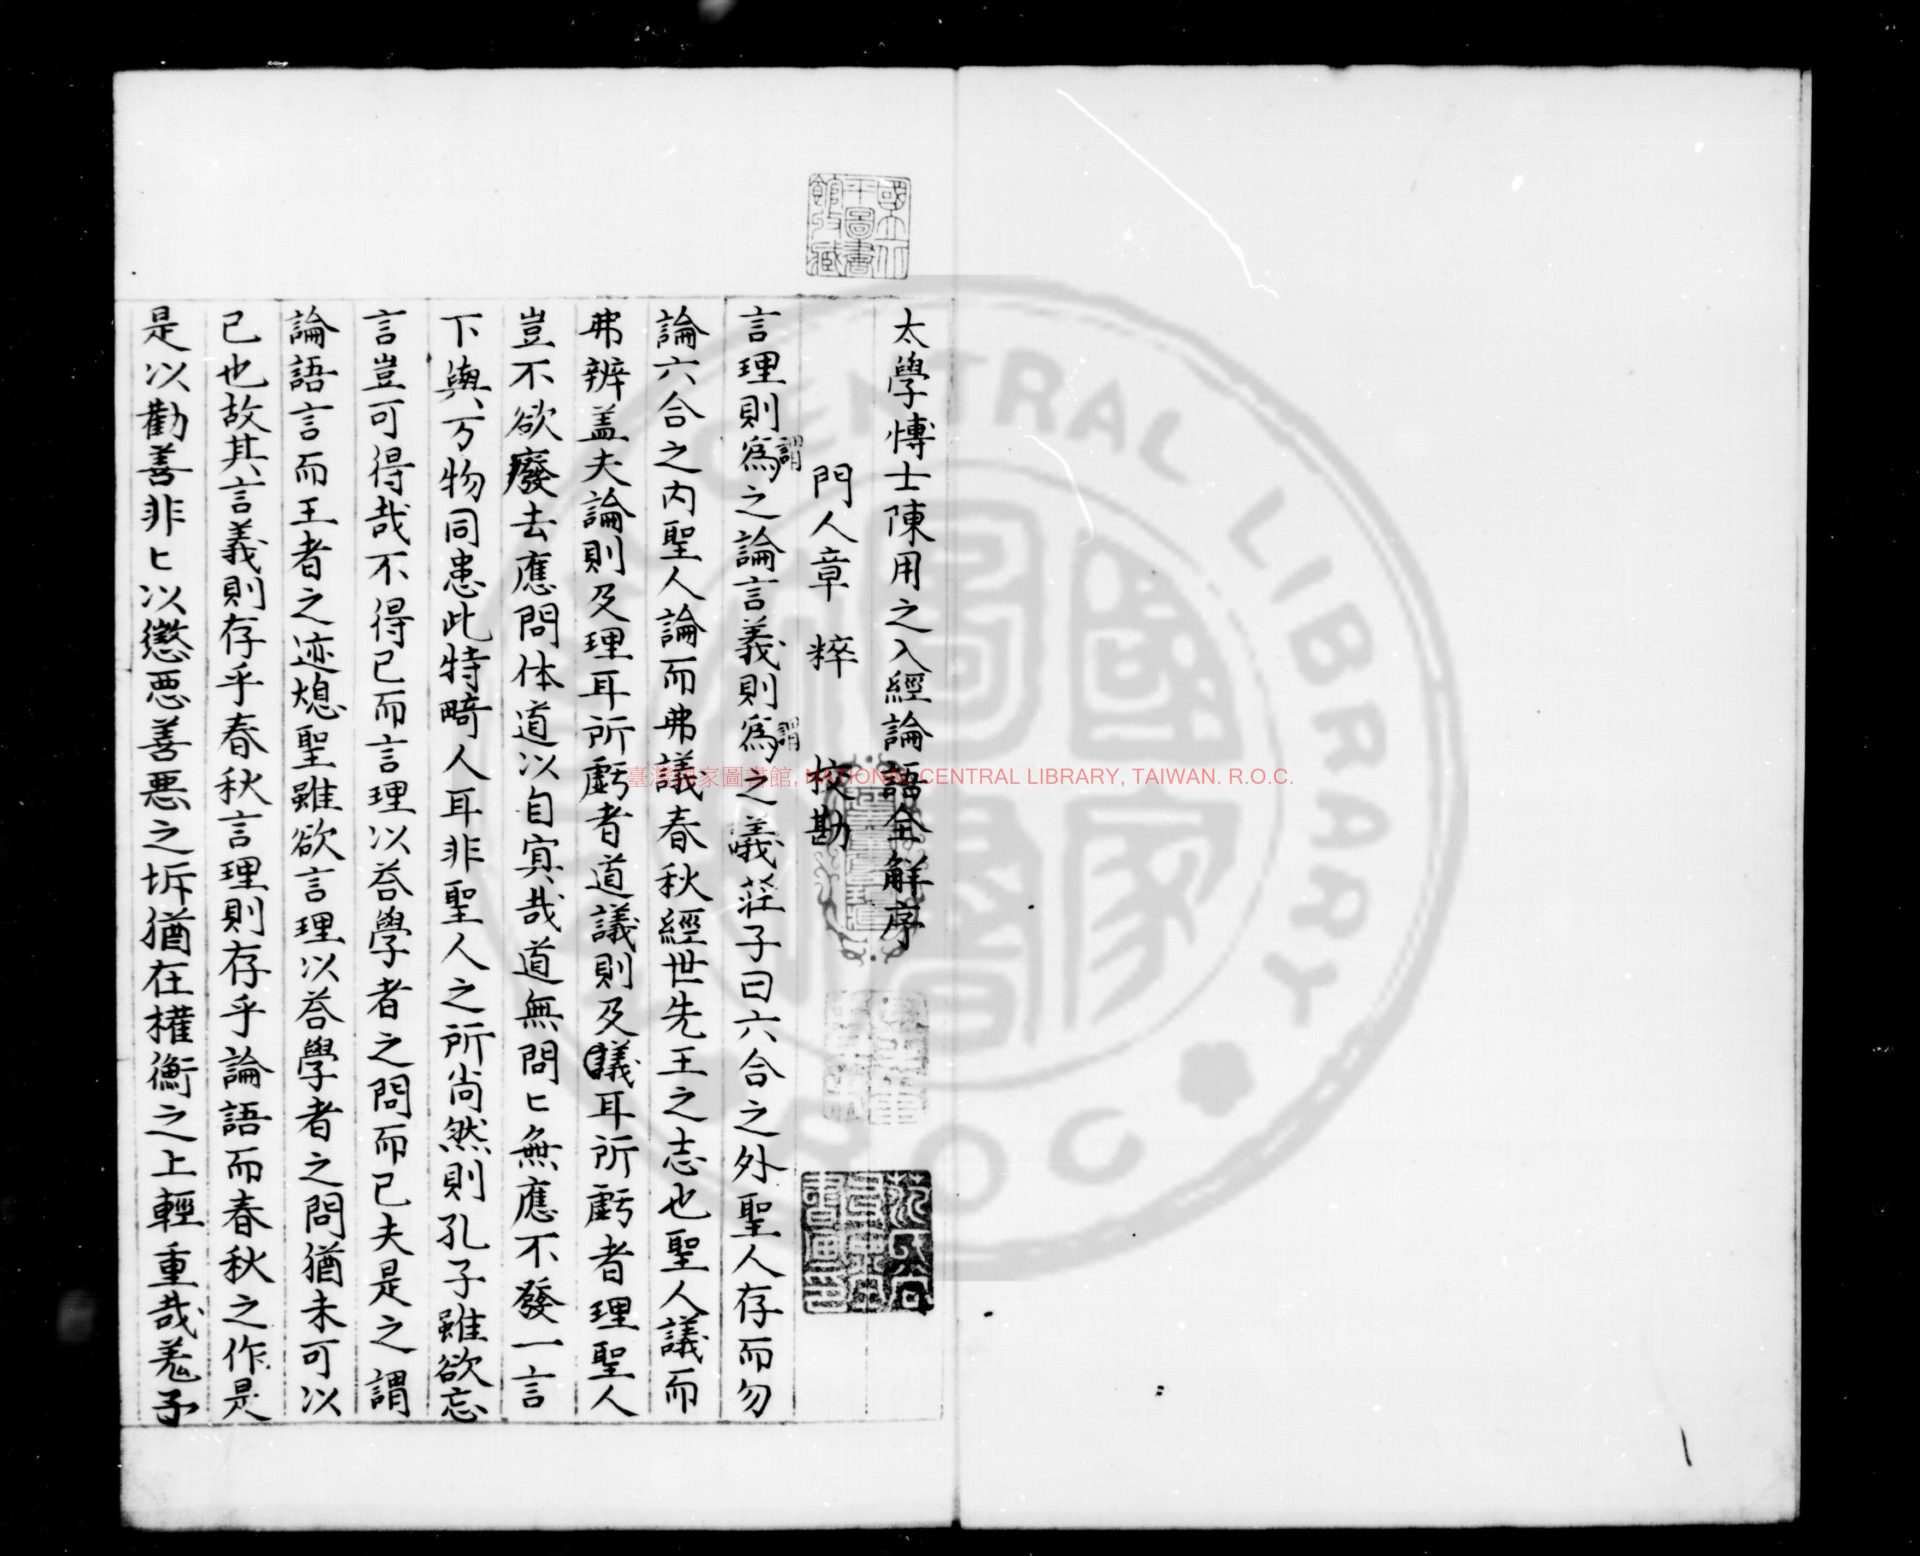 太學博士陳用之入經論語全觧序
門人章粹校勘
言理則爲之論言義則爲之議莊子曰六合之外聖人存而勿
謂
謂
論六合之内聖人論而弗議春秋經世先王之志也聖人議而
弗辨盖夫論則及理耳所虧者道議則及議耳所虧者理聖人
豈不欲廢去應問体道以自寘哉道無問匕無應不發一言
下與万物同患此特畸人耳非聖人之所尚然則孔子雖欲忘
言豈可得哉不得已而言理以荅學者之問而已夫是之謂
論語言而王者之迹熄聖雖欲言理以荅學者之問猶未可以
已也故其言義則存乎春秋言理則存乎論語而春秋之作是
是以勸善非匕以懲惡善悪之坼猶在權衡之上輕重哉羗予
國立北平圖書館收藏
臺灣國家圖書館, NATIONAL CENTRAL LIBRARY, TAIWAN. R.O.C.
CENTRAL LIBRARY
R.O.C
國家圖書